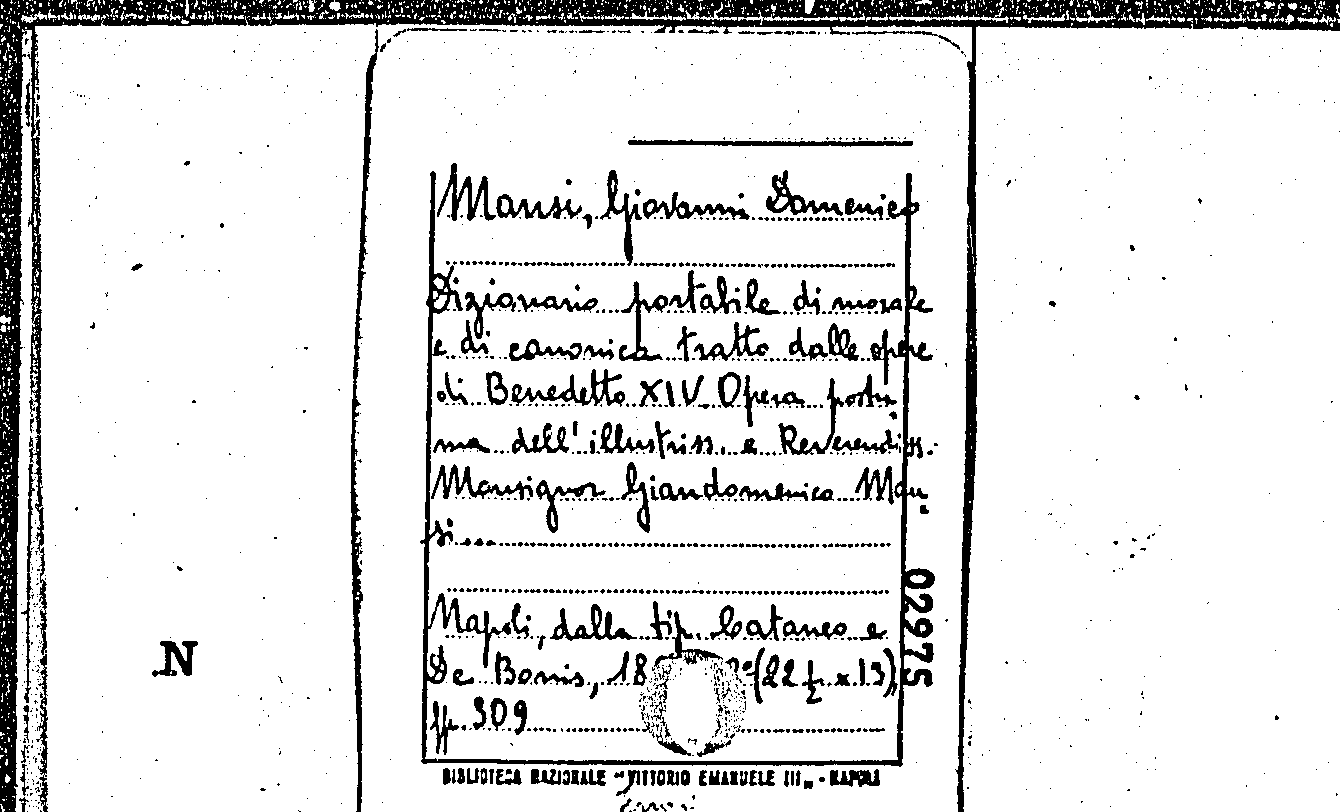 Mansi, Giovanni Domenico
Dizionario portabile di morale
e di canonica tratto dalle opere
di Benedetto XIV. Opera postu-
ma dell' illustriss. e Reverendiss.
Monsignor Giandomenico Man-
si...
Napoli, dalla tip. Cataneo e
De Bonis, 18 (22 ½ x 13),
pp. 309
02975
N.
BIBLIOTECA NAZIONALE "VITTORIO EMANUELE III" - NAPOLI